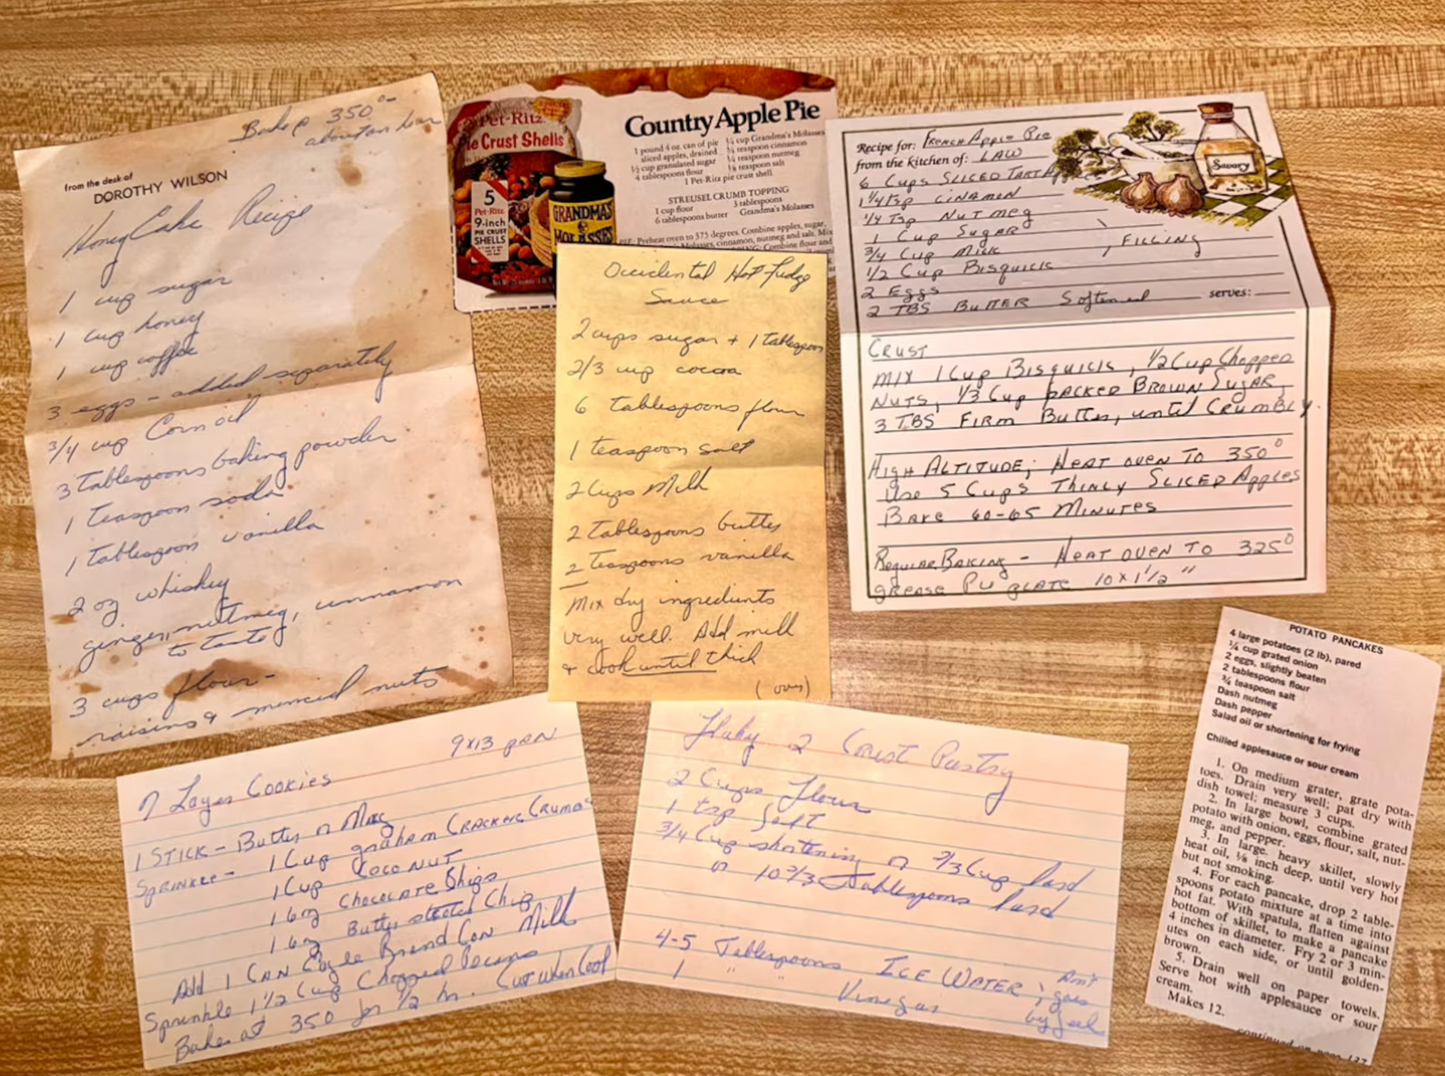 Bake @ 350°-
about an hour
from the desk of
DOROTHY WILSON
Honey Cake Recipe
1 cup sugar
1 cup honey
1 cup coffee
3 eggs - added separately
3/4 cup Corn oil
3 Tablespoons baking powder
1 teaspoon soda
1 tablespoon vanilla
2 oz whiskey
ginger, nutmeg, cinnamon
to taste
3 cups flour -
raisins & minced nuts
Pet-Ritz
Pie Crust Shells
5
Pet-Ritz
9-inch
PIE CRUST
SHELLS
GRANDMA'S
MOLASSES
Country Apple Pie
1 pound 4 oz. can of pie
sliced apples, drained
1/2 cup granulated sugar
4 tablespoons flour
1/4 cup Grandma's Molasses
1/4 teaspoon cinnamon
1/8 teaspoon nutmeg
1/8 teaspoon salt
1 Pet-Ritz pie crust shell
STREUSEL CRUMB TOPPING
1 cup flour
6 tablespoons butter
3 tablespoons
Grandma's Molasses
Preheat oven to 375 degrees. Combine apples, sugar,
Molasses, cinnamon, nutmeg and salt.
Combine flour and
Occidental Hot Fudge
Sauce
2 cups sugar + 1 tablespoon
2/3 cup cocoa
6 tablespoons flour
1 teaspoon salt
2 Cups Milk
2 Tablespoons butter
2 Teaspoons vanilla
Mix dry ingredients
very well. Add milk
& cook until thick
(over)
Recipe for: French Apple Pie
from the kitchen of: LAW
6 Cups SLICED TART
1 1/4 Tsp CINAMON
1/4 Tsp NUTMEG
1 Cup SUGAR
3/4 Cup MILK
, FILLING
1/2 Cup BISQUICK
2 EGGS
2 TBS BUTTER Softened
serves:
CRUST
MIX 1 Cup BISQUICK, 1/2 Cup Chopped
NUTS, 1/3 Cup PACKED BROWN SUGAR,
3 TBS FIRM BUTTER, until CRUMBLY.
HIGH ALTITUDE; HEAT OVEN TO 350°
Use 5 Cups THINLY SLICED Apples
BAKE 60-65 MINUTES
REGULAR BAKING - HEAT OVEN TO 325°
GREASE PIE PLATE 10 x 1 1/2"
9x13 PAN
7 Layer Cookies
1 STICK - Butter or Marg
Sprinkle - 1 Cup graham CRACKER CRUMBS
1 Cup COCONUT
1 6oz CHOCOLATE Chips
1 6oz Butter scotch Chip
Add 1 CAN Eagle Brand Con Milk
Sprinkle 1 1/2 Cup Chopped Pecans
Bake at 350 for 1/2 hr. Cut when Cool
Flaky 2 Crust Pastry
2 Cups Flour
1 tsp Salt
3/4 Cup shortening or 2/3 Cup lard
or 10 2/3 Tablespoons lard
4-5 Tablespoons ICE WATER
1 " " Vinegar
; goes
by feel
POTATO PANCAKES
4 large potatoes (2 lb), pared
1/4 cup grated onion
2 eggs, slightly beaten
2 tablespoons flour
3/4 teaspoon salt
Dash nutmeg
Dash pepper
Salad oil or shortening for frying
Chilled applesauce or sour cream
1. On medium grater, grate pota-
toes. Drain very well; pat dry with
dish towel; measure 3 cups.
2. In large bowl, combine grated
potato with onion, eggs, flour, salt, nut-
meg, and pepper.
3. In large, heavy skillet, slowly
heat oil, 1/8 inch deep, until very hot
but not smoking.
4. For each pancake, drop 2 table-
spoons potato mixture at a time into
hot fat. With spatula, flatten against
bottom of skillet, to make a pancake
4 inches in diameter. Fry 2 or 3 min-
utes on each side, or until golden-
brown.
5. Drain well on paper towels.
Serve hot with applesauce or sour
cream.
Makes 12.
continued on page 137